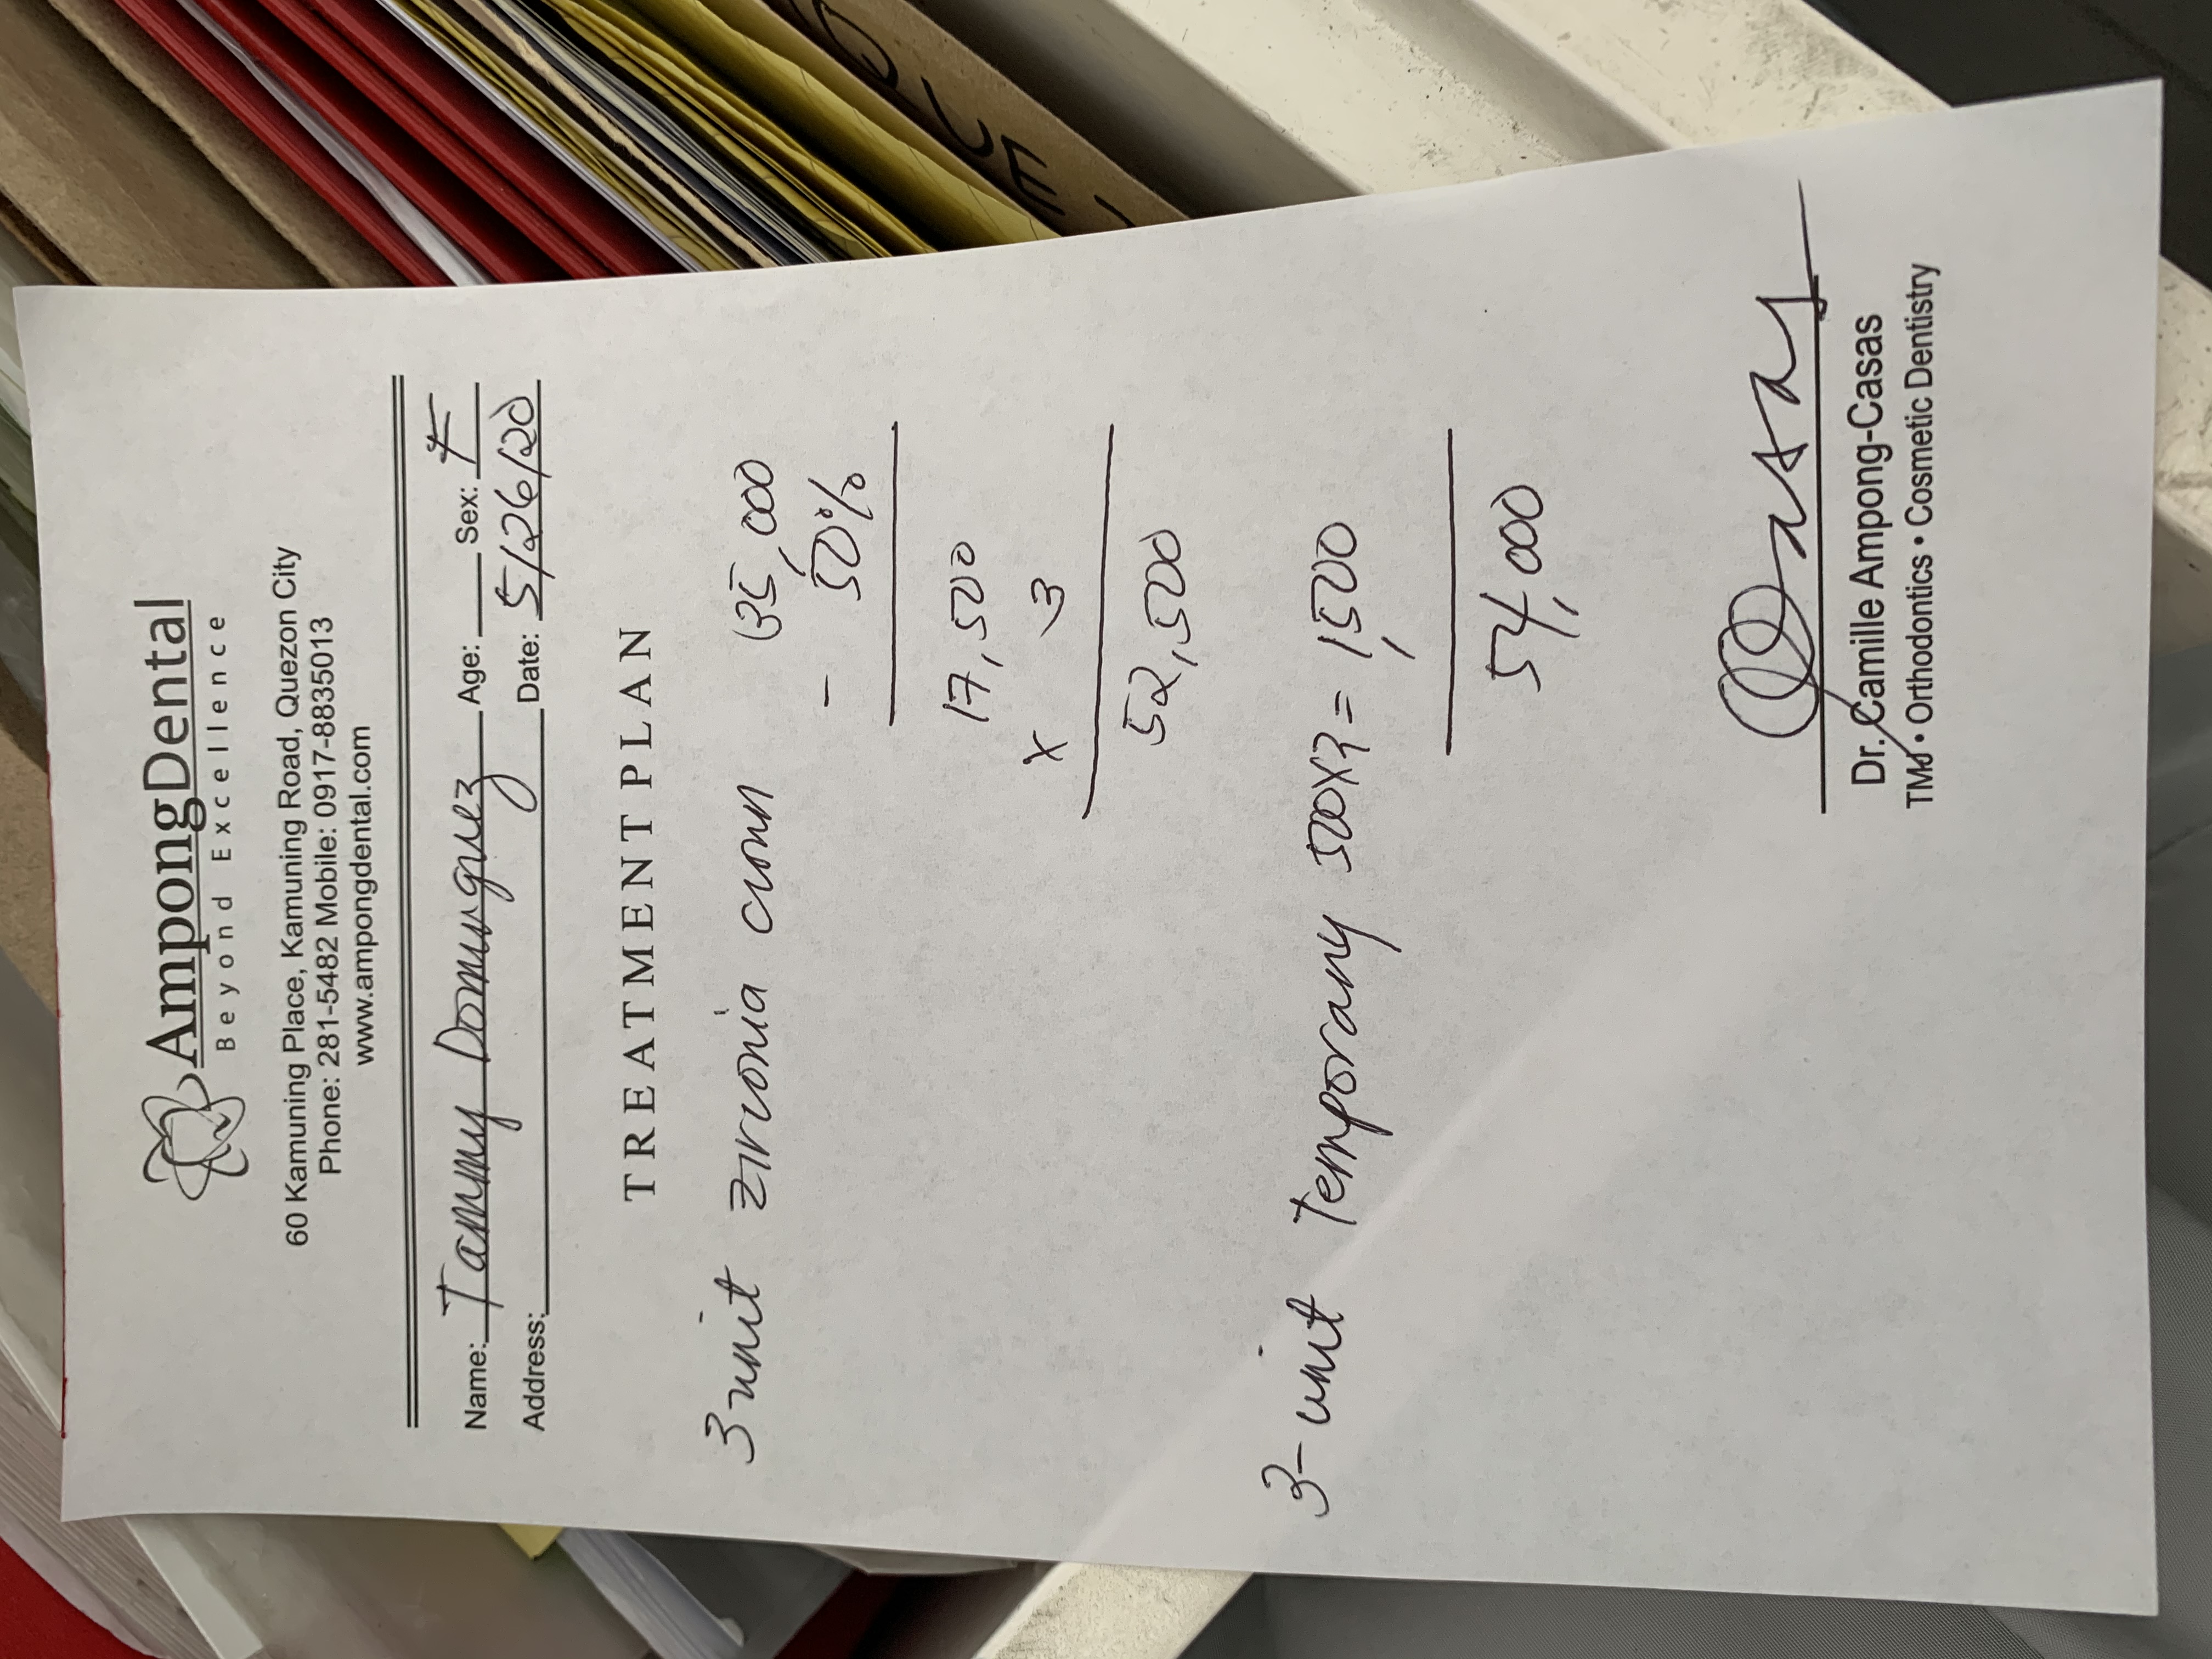 AmpongDental
Beyond Excellence
60 Kamuning Place, Kamuning Road, Quezon City
Phone: 281-5482 Mobile: 0917-8835013
www.ampongdental.com
Name: Tammy Dominguez Age: Sex: F
Address: Date: 5/26/20
TREATMENT PLAN
3-unit zirconia crown 35,000
- 50%
17,500
x 3
52,500
3-unit Temporary 500x3 = 1,500
54,000
Casas
Dr. Camille Ampong-Casas
TMJ • Orthodontics • Cosmetic Dentistry